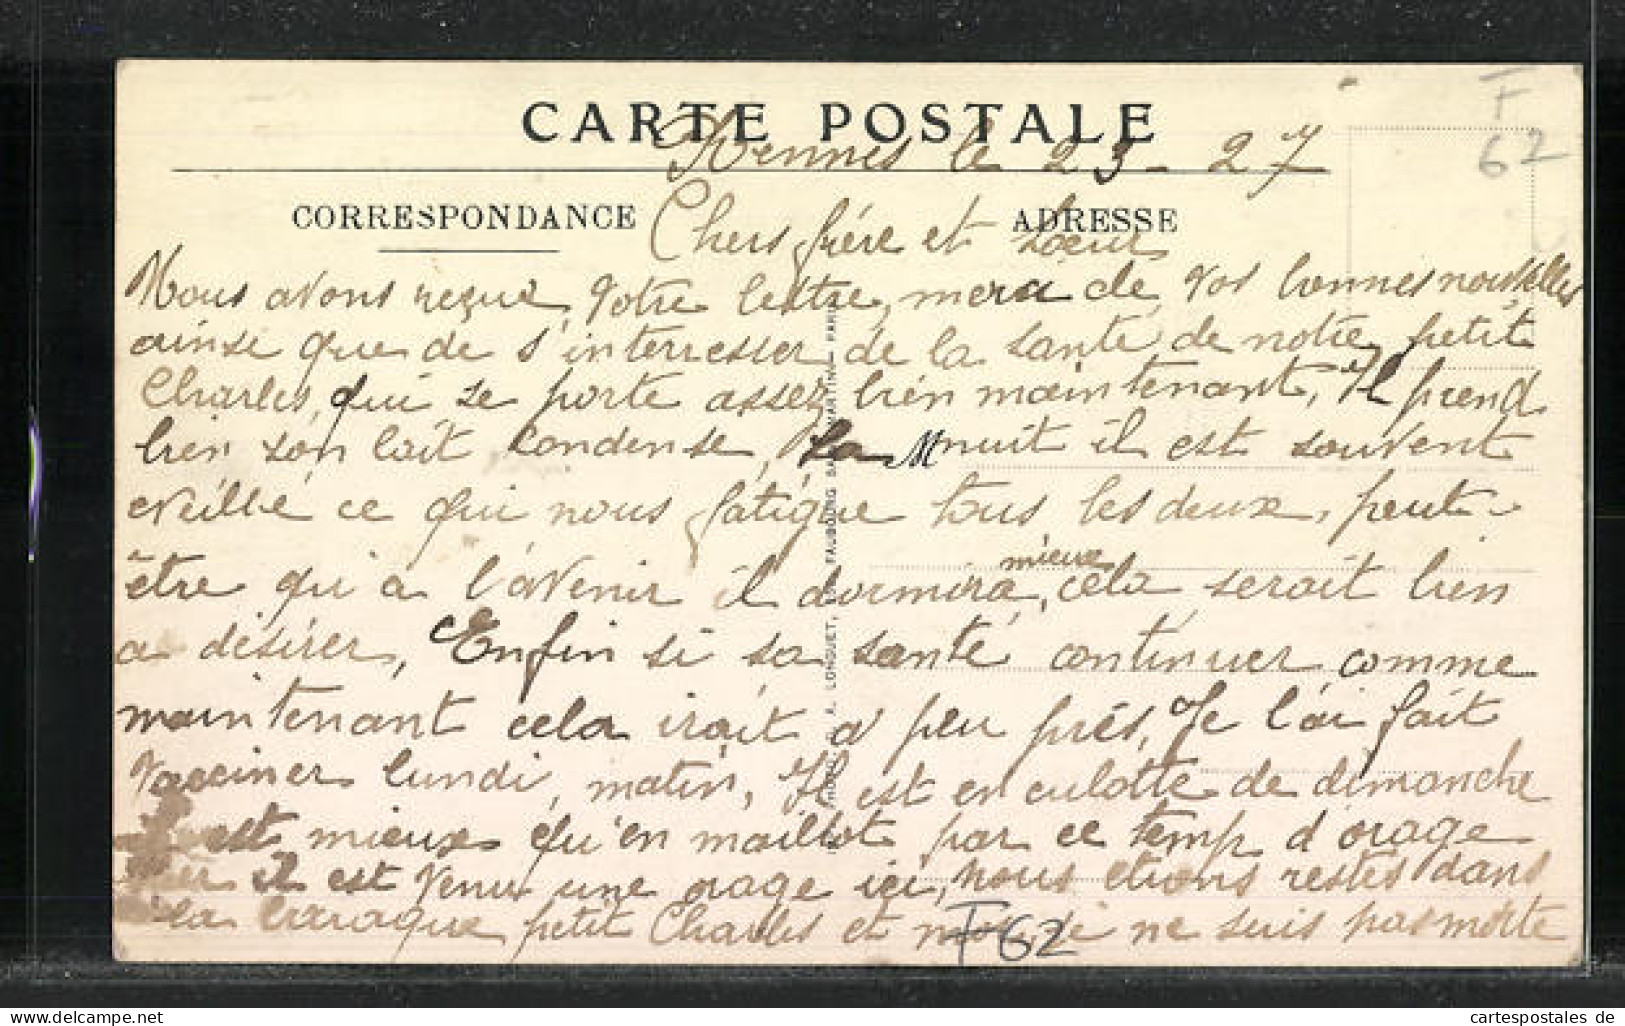 F
62
CARTE POSTALE
Rennes le 23 - 27
CORRESPONDANCE
ADRESSE
Chers frére et Sœur
Nous avons reçue votre lettre, merci de vos bonnes nouvelles
ainse que de s'interresser de la santé de notre petit
Charles, qui se porte assez bien maintenant, Il prend
bien son lait condense, La nuit il est souvent
eveillé ce qui nous fatigue tous les deux, peut-
être qu'a l'avenir il dormira mieux, cela serait bien
a désirer, Enfin si sa santé continuer comme
maintenant cela irait a peu prés, Je l'ai fait
vacciner lundi, matin, Il est en culotte de dimanche
est mieux qu'en maillot par ce temp d orage
il est venu une orage ici, nous etions restés dans
la baraque petit Charles et moi je ne suis pas morte
F62
FAUBOURG SAINT-MARTIN - PARIS
A. LONGUET,
cartespostales de